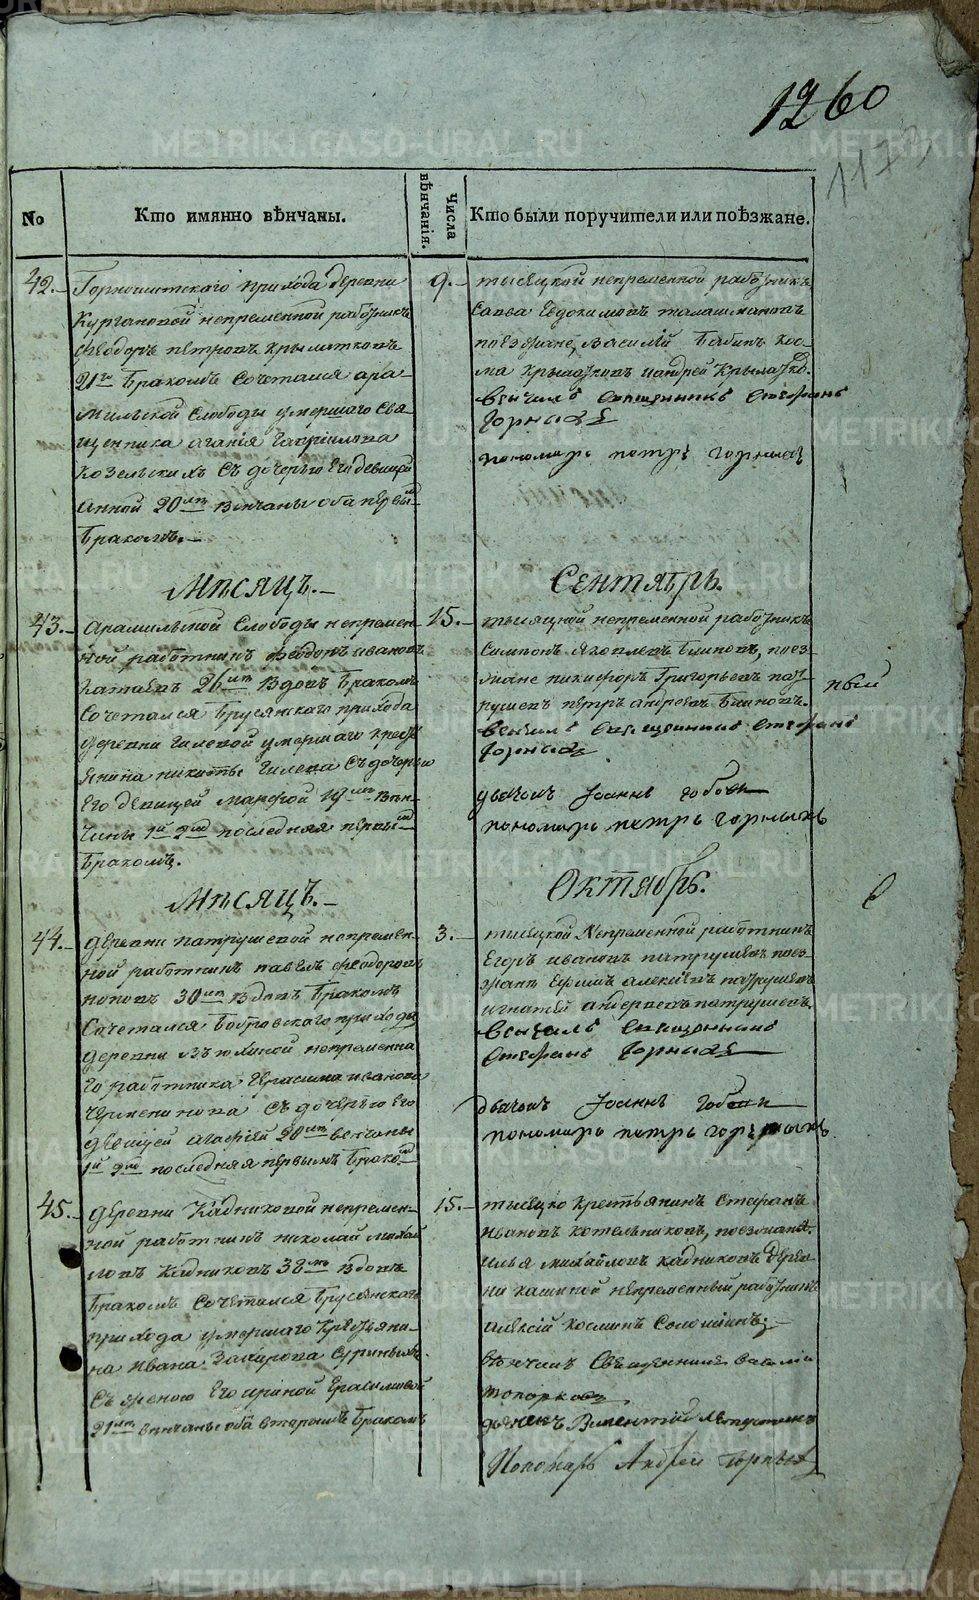 1260
117
№
Кто имянно вѣнчаны.
Числа вѣнчанія.
Кто были поручители или поѣзжане.
42.
Горнощитскаго прихода деревни
Кургановой непременной работникъ
Феодоръ петровъ крылатковъ
21го Бракомъ Сочетался ара-
мильской Слободы умершаго Свя-
щенника Гаврилова
Козельскихъ Съ дочерью Его девицей
Анной 20 лѣт венчаны оба первы-
Бракомъ.
9.
тысяцкой непременной работникъ
Савва Евдокимовъ талашмановъ
поезжане, василій Бабинъ кос-
ма крылатковъ иандрей Крылатко.
венчалъ Священникъ Стефанъ
Горныхъ
пономарь петръ горныхъ
Мѣсяцъ.
Сентябрь.
43.
арамильской Слободы непремен-
ной работникъ Феодоръ ивановъ
катаевъ 26 лѣт Вдовъ Бракомъ
Сочетался Брусянскаго прихода
деревни Гилевой умершаго крестья
янина никиты Гилева Съ дочерью
Его девицей марфой 19 лѣт Вѣн-
чаны 1й 2мъ последняя первы-
Бракомъ.
15.
тысяцкой непременной работникъ
Симионъ Яковлевъ Блиновъ, поез-
жане никифоръ Григорьевъ пат-
рушевъ петръ андреевъ Блиновъ.
венчалъ Священникъ Стефанъ
Горныхъ
дьячокъ Іоаннъ
пономарь петръ горныхъ
ный
Мѣсяцъ.
Октябрь.
44.
деревни патрушевой непремен-
ной работникъ павелъ Феодоровъ
поповъ 30 лѣт Вдовъ Бракомъ
Сочетался Бобровскаго прихода
деревни непременна
го работника Герасима иванова
Съ дочерью Его
девицей агафией 20 лѣт венчаны
1й 2мъ последняя первымъ Браком
3.
тысяцкой Непременной работникъ
Егоръ ивановъ патрушевъ поез-
жане Ефимъ алексѣевъ патрушевъ
игнатей андреевъ патрушевъ.
венчалъ Священникъ
Стефанъ Горныхъ
дьячокъ Іоаннъ
пономарь петръ горныхъ
45.
деревни Кадниковой непремен-
ной работникъ николай михай
ловъ Кадниковъ 38 лѣт вдовъ
Бракомъ Сочетался Брусянскаго
прихода умершаго Крестьяни-
на ивана Захарова
Съ женою Его ириной Герасимовой
21 лѣт венчаны оба вторымъ Бракомъ
15.
тысяцко крестьянинъ Стефанъ
ивановъ котельниковъ, поезжане
илья михайловъ кадниковъ дерев
ни кашиной непременный работникъ
алексій косминъ Соломеинъ
венчалъ Священникъ василій
топорковъ
дьячекъ Викентій
Пономарь Андрей Горныхъ
METRIKI.GASO-URAL.RU